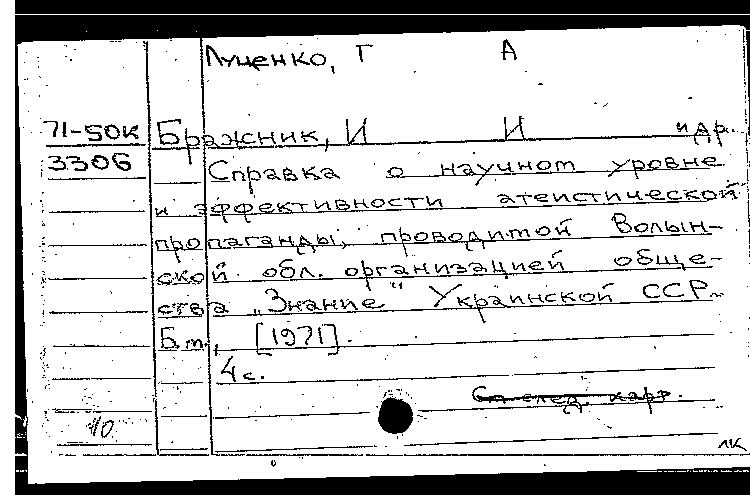 Луценко, Г А
71-50к Бражник, И И и др.
3306 Справка о научном уровне
и эффективности атеистической
пропаганды, проводимой Волын-
ской обл. организацией обще-
ства „Знание" Украинской ССР.-
Б.м., [1971].
4 с.
См след карт.
10
лк